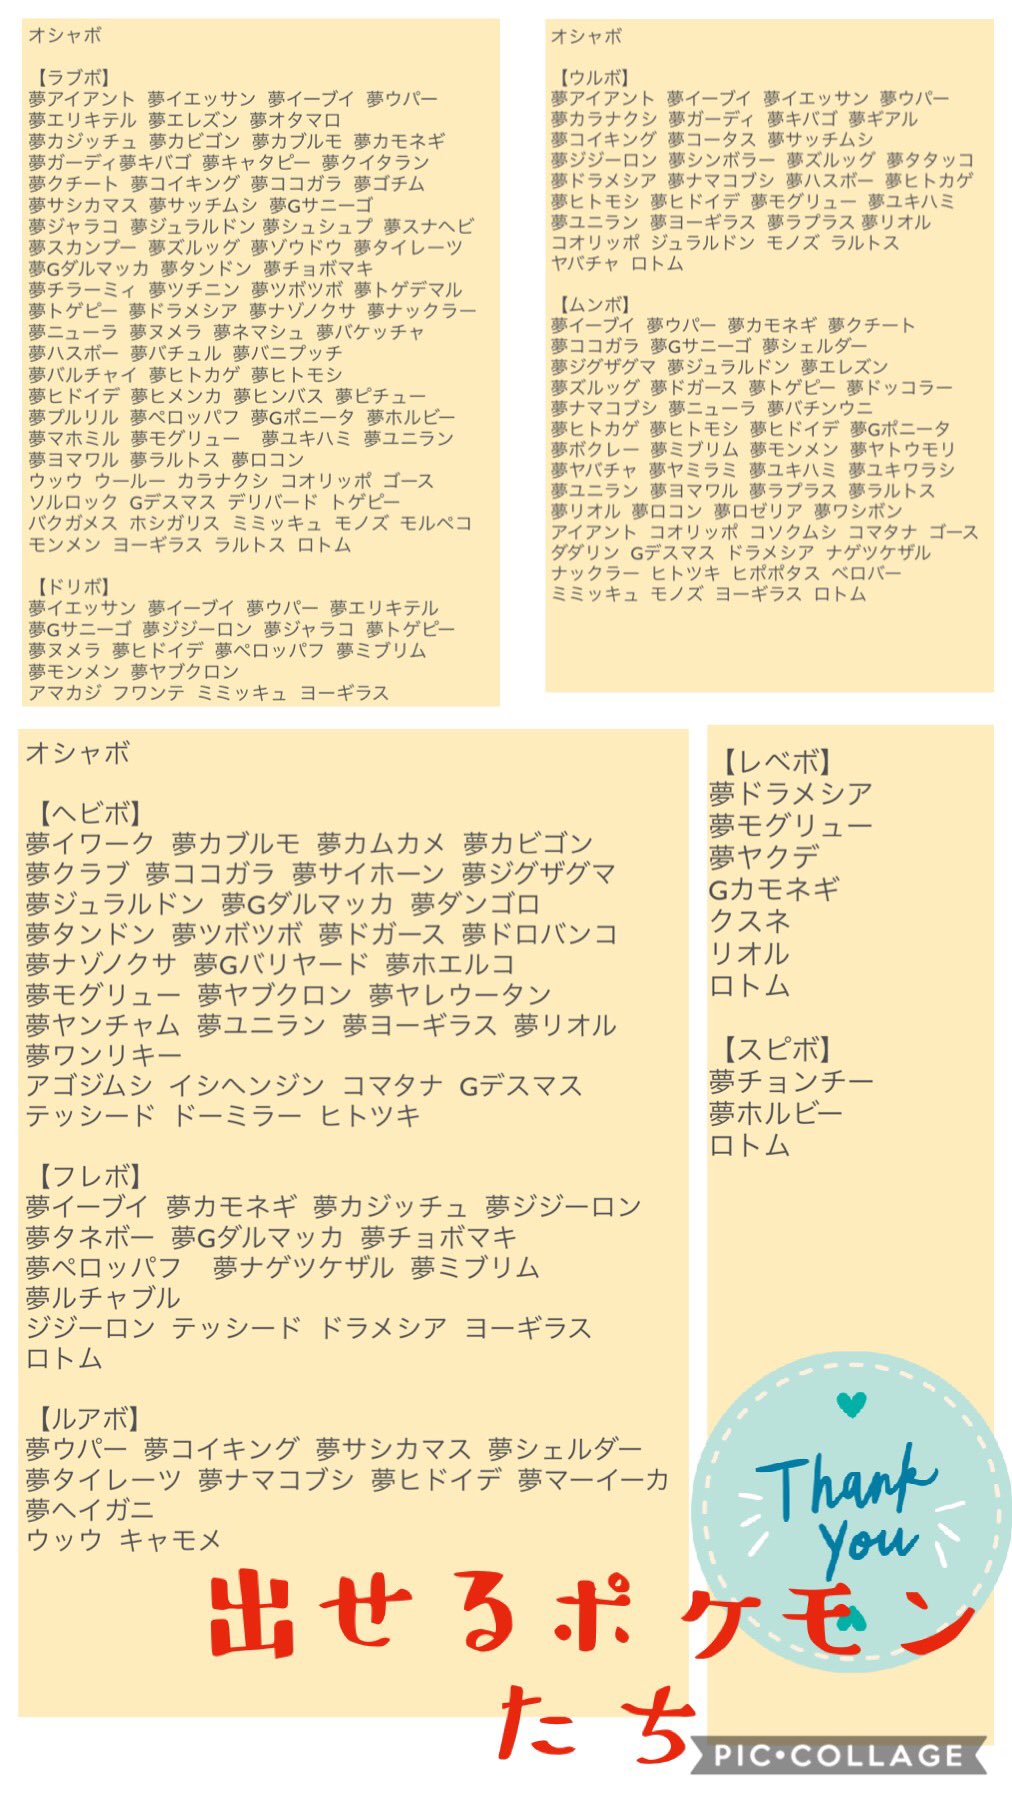 オシャボ
【ラブボ】
夢アイアント 夢イエッサン 夢イーブイ 夢ウパー
夢エリキテル 夢エレズン 夢オタマロ
夢カジッチュ 夢カビゴン 夢カブルモ 夢カモネギ
夢ガーディ夢キバゴ 夢キャタピー 夢クイタラン
夢クチート 夢コイキング 夢ココガラ 夢ゴチム
夢サシカマス 夢サッチムシ 夢Gサニーゴ
夢ジャラコ 夢ジュラルドン 夢シュシュプ 夢スナヘビ
夢スカンプー 夢ズルッグ 夢ゾウドウ 夢タイレーツ
夢Gダルマッカ 夢タンドン 夢チョボマキ
夢チラーミィ 夢ツチニン 夢ツボツボ 夢トゲデマル
夢トゲピー 夢ドラメシア 夢ナゾノクサ 夢ナックラー
夢ニューラ 夢ヌメラ 夢ネマシュ 夢バケッチャ
夢ハスボー 夢バチュル 夢バニプッチ
夢バルチャイ 夢ヒトカゲ 夢ヒトモシ
夢ヒドイデ 夢ヒメンカ 夢ヒンバス 夢ピチュー
夢プルリル 夢ペロッパフ 夢Gポニータ 夢ホルビー
夢マホミル 夢モグリュー 夢ユキハミ 夢ユニラン
夢ヨマワル 夢ラルトス 夢ロコン
ウッウ ウールー カラナクシ コオリッポ ゴース
ソルロック Gデスマス デリバード トゲピー
バクガメス ホシガリス ミミッキュ モノズ モルペコ
モンメン ヨーギラス ラルトス ロトム
【ドリボ】
夢イエッサン 夢イーブイ 夢ウパー 夢エリキテル
夢Gサニーゴ 夢ジジーロン 夢ジャラコ 夢トゲピー
夢ヌメラ 夢ヒドイデ 夢ペロッパフ 夢ミブリム
夢モンメン 夢ヤブクロン
アマカジ フワンテ ミミッキュ ヨーギラス
オシャボ
【ウルボ】
夢アイアント 夢イーブイ 夢イエッサン 夢ウパー
夢カラナクシ 夢ガーディ 夢キバゴ 夢ギアル
夢コイキング 夢コータス 夢サッチムシ
夢ジジーロン 夢シンボラー 夢ズルッグ 夢タタッコ
夢ドラメシア 夢ナマコブシ 夢ハスボー 夢ヒトカゲ
夢ヒトモシ 夢ヒドイデ 夢モグリュー 夢ユキハミ
夢ユニラン 夢ヨーギラス 夢ラプラス 夢リオル
コオリッポ ジュラルドン モノズ ラルトス
ヤバチャ ロトム
【ムンボ】
夢イーブイ 夢ウパー 夢カモネギ 夢クチート
夢ココガラ 夢Gサニーゴ 夢シェルダー
夢ジグザグマ 夢ジュラルドン 夢エレズン
夢ズルッグ 夢ドガース 夢トゲピー 夢ドッコラー
夢ナマコブシ 夢ニューラ 夢バチンウニ
夢ヒトカゲ 夢ヒトモシ 夢ヒドイデ 夢Gポニータ
夢ボクレー 夢ミブリム 夢モンメン 夢ヤトウモリ
夢ヤバチャ 夢ヤミラミ 夢ユキハミ 夢ユキワラシ
夢ユニラン 夢ヨマワル 夢ラプラス 夢ラルトス
夢リオル 夢ロコン 夢ロゼリア 夢ワシボン
アイアント コオリッポ コソクムシ コマタナ ゴース
ダダリン Gデスマス ドラメシア ナゲツケザル
ナックラー ヒトツキ ヒポポタス ベロバー
ミミッキュ モノズ ヨーギラス ロトム
オシャボ
【ヘビボ】
夢イワーク 夢カブルモ 夢カムカメ 夢カビゴン
夢クラブ 夢ココガラ 夢サイホーン 夢ジグザグマ
夢ジュラルドン 夢Gダルマッカ 夢ダンゴロ
夢タンドン 夢ツボツボ 夢ドガース 夢ドロバンコ
夢ナゾノクサ 夢Gバリヤード 夢ホエルコ
夢モグリュー 夢ヤブクロン 夢ヤレウータン
夢ヤンチャム 夢ユニラン 夢ヨーギラス 夢リオル
夢ワンリキー
アゴジムシ イシヘンジン コマタナ Gデスマス
テッシード ドーミラー ヒトツキ
【フレボ】
夢イーブイ 夢カモネギ 夢カジッチュ 夢ジジーロン
夢タネボー 夢Gダルマッカ 夢チョボマキ
夢ペロッパフ 夢ナゲツケザル 夢ミブリム
夢ルチャブル
ジジーロン テッシード ドラメシア ヨーギラス
ロトム
【ルアボ】
夢ウパー 夢コイキング 夢サシカマス 夢シェルダー
夢タイレーツ 夢ナマコブシ 夢ヒドイデ 夢マーイーカ
夢ヘイガニ
ウッウ キャモメ
【レベボ】
夢ドラメシア
夢モグリュー
夢ヤクデ
Gカモネギ
クスネ
リオル
ロトム
【スピボ】
夢チョンチー
夢ホルビー
ロトム
Thank
you
出せるポケモン
たち
PIC•COLLAGE